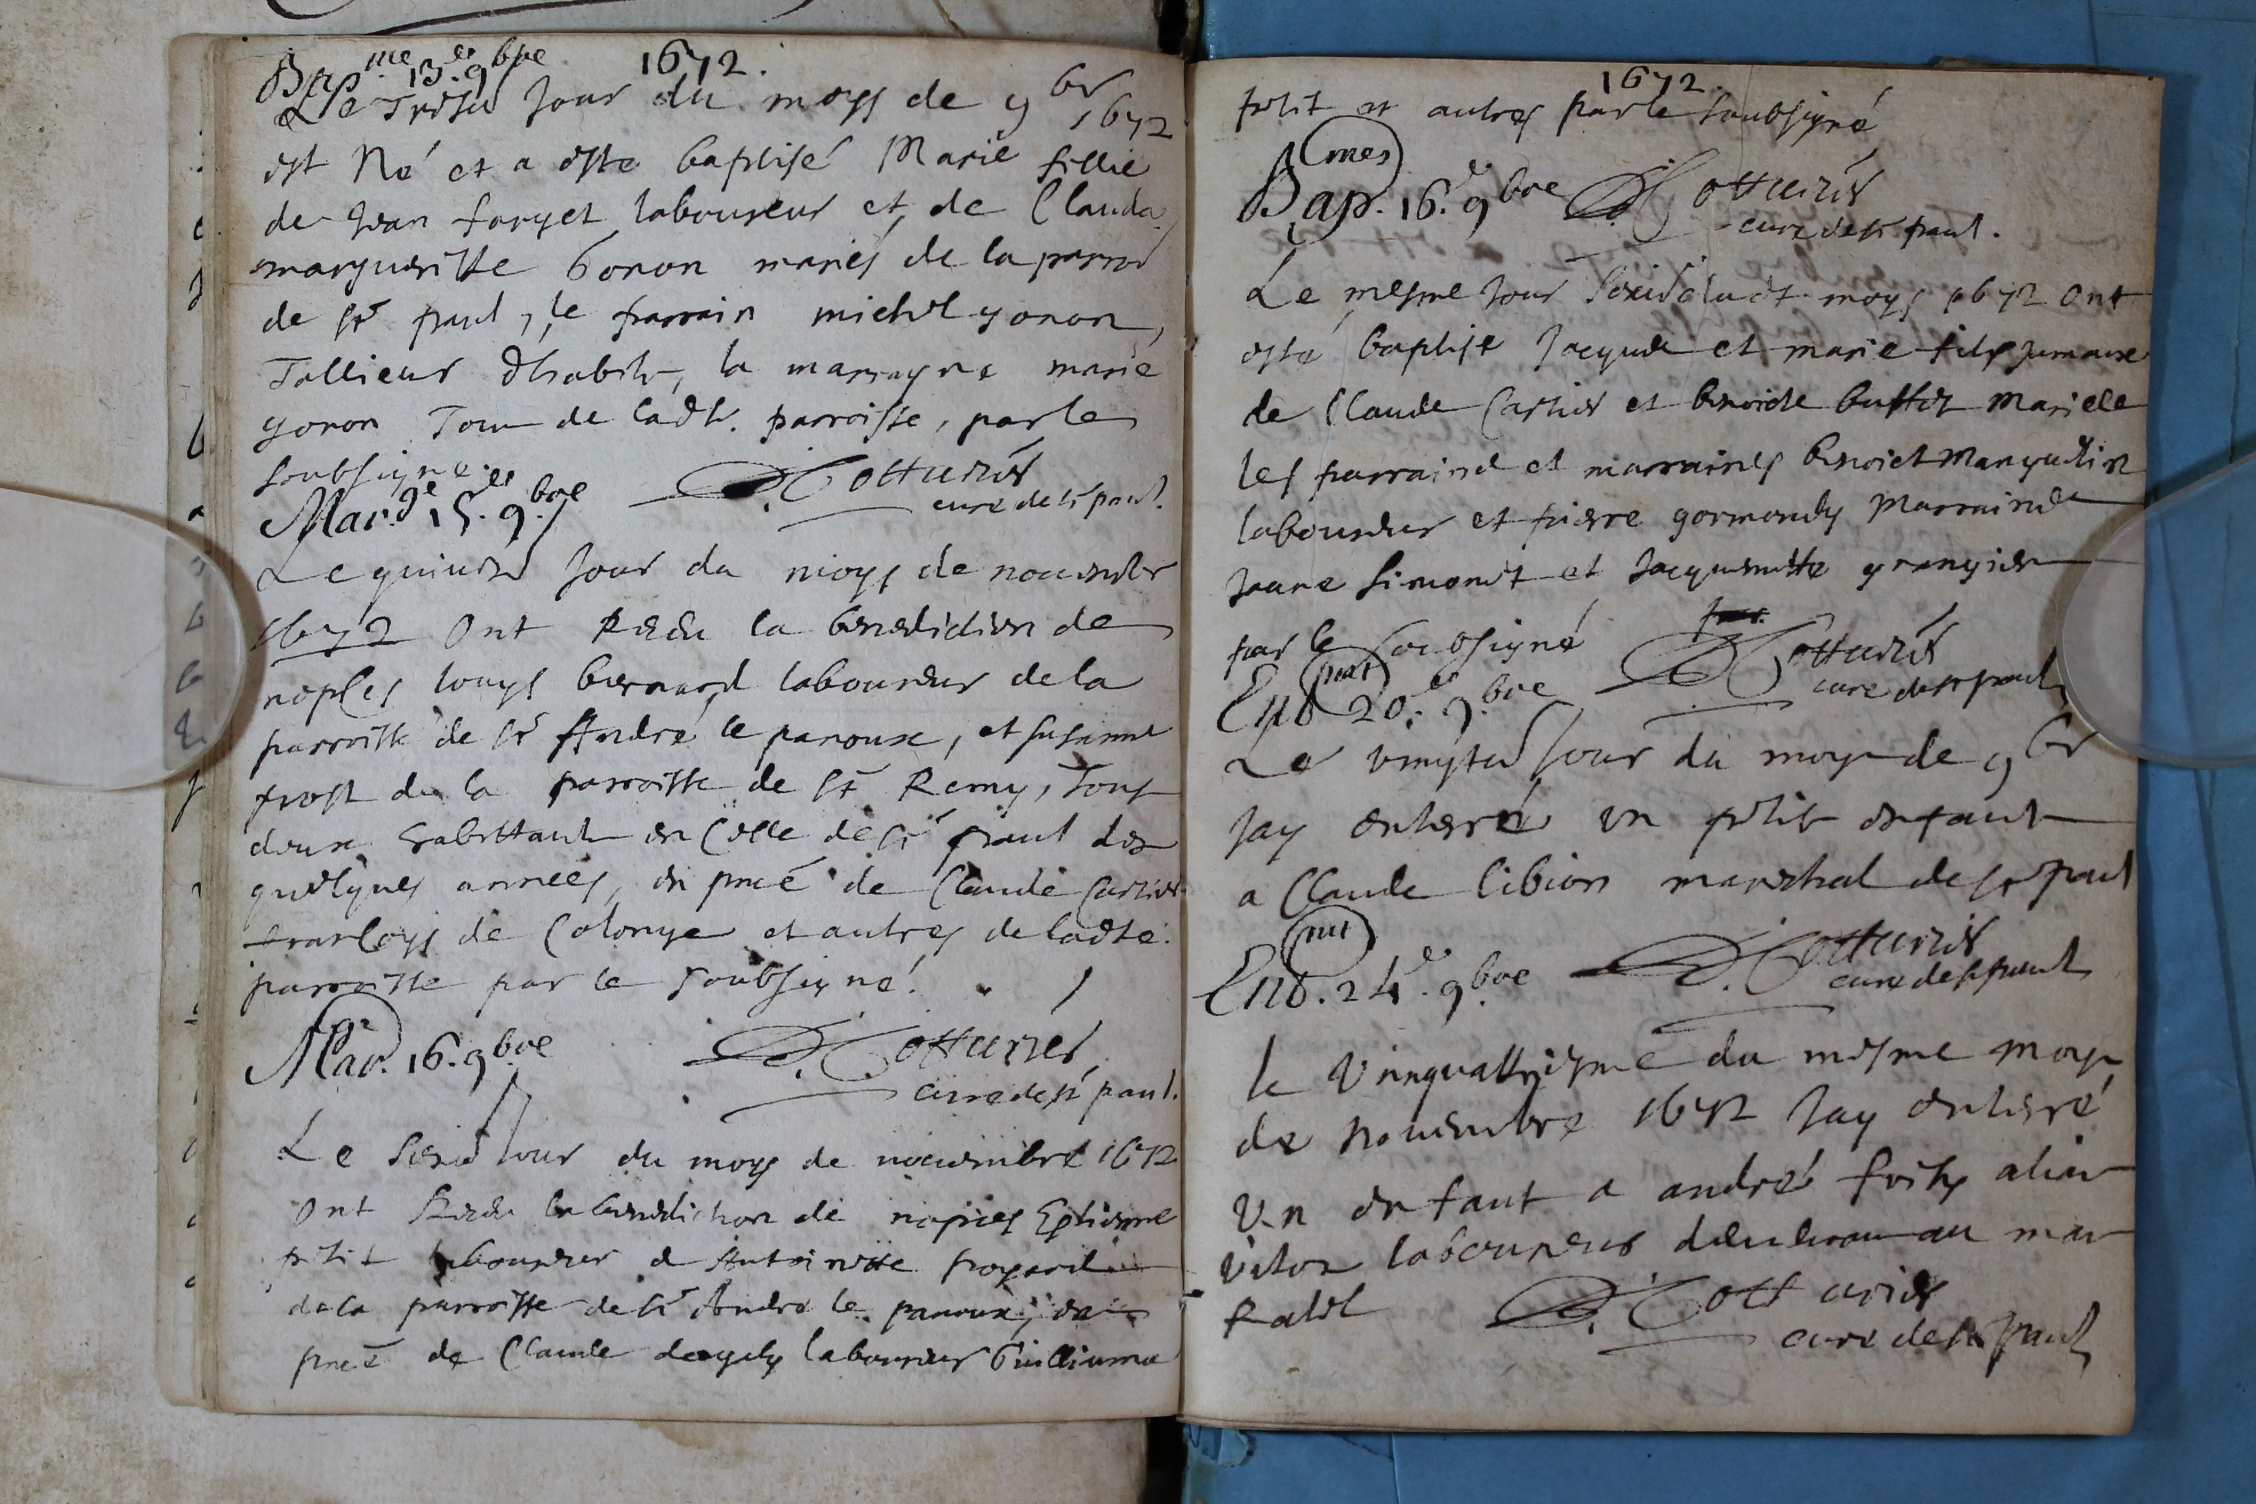 1672.
Bap.me 13.e 9bre
Le Trese Jour du moys de 9br 1672
est Né et a este baptisé Marie fillie
de Jean forget laboureur et de Clauda
margueritte Gonon mariés de la parroi
de st paul, le parrain michel gonon,
Tallieur dhabits, la marrayne marie
gonon Tous de ladte. parroisse, par le
soubsigne.
D. Cotturier
cure de st paul.
Mar.ge 15.e 9.bre
Le quinze Jour du moys de novembr
1672 Ont Receu la benediction de
nopces louys bernard laboureur de la
parroisse de st André le panoux, et susanne
prost de la parroisse de st Remy, Tous
deux habittant en Celle de st paul des
quelques annees, en pnce de Claude Cartier
francoys de Colonge et autres de ladte.
parroisse par le soubsigné.
D. Cotturier
cure de st paul.
Mar.ge 16. 9.bre
Le seze Jour du moys de novembre 1672
Ont Receu la benediction de nopces Estienne
petit laboureur et Antoinette
de la parroisse de st Andre le panoux, en
pnce de Claude laboureur Guilliaume
1672.
petit et autres par le soubsigné
Bap.mes 16.e 9bre
D. Cotturier
cure de st paul.
Le mesme Jour seze dudt moys 1672 Ont
esté baptise Jacques et marie fils Jumaux
de Claude Cartier et benoiste buttet Mariee
les parrains et marraines benoict
laboureur et pierre gormondy Marraines
Jeane simonet et Jacquemette grangier
par le soubsigné
D. Cotturier
cure de st paul
Ent.ment 20.e 9.bre
Le vingte Jour du moys de 9br
Jay enterré un petit enfant
a Claude libion mareshal de st paul
D. Cotturier
cure de st paul
Ent. 24.e 9bre
le Vinquattriesme du mesme moys
de novembre 1672 Jay enterré
Un enfant a andré alias
laboureur au mas
D. Cotturier
cure de st paul